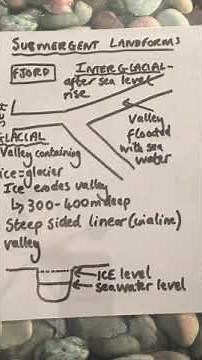 SUBMERGENT LANDFORMS
FJORD
INTERGLACIAL -
after sea level
rise
GLACIAL
Valley containing
ice=glacier
Ice erodes valley
↳ 300-400m deep
Steep sided linear (uialine)
valley
Valley
flooded
with sea
water
ICE level
seawater level